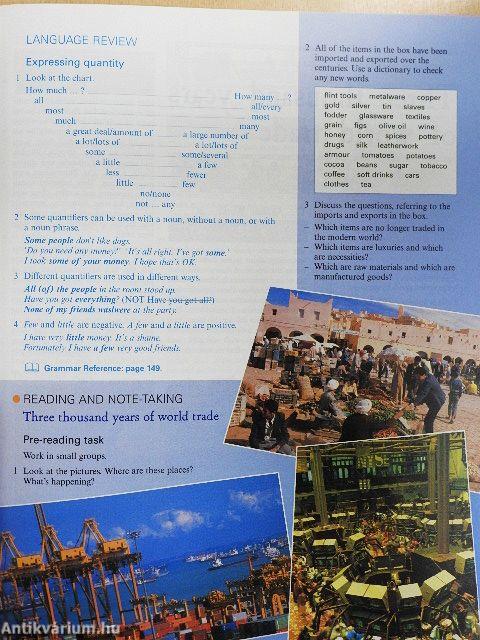 LANGUAGE REVIEW
Expressing quantity
1 Look at the chart.
How much ... ? How many ... ?
all all/every
most most
much many
a great deal/amount of a large number of
a lot/lots of a lot/lots of
some some/several
a little a few
less fewer
little few
no/none
not ... any
2 Some quantifiers can be used with a noun, without a noun, or with
a noun phrase.
Some people don't like dogs.
'Do you need any money?' 'It's all right. I've got some.'
I took some of your money. I hope that's OK.
3 Different quantifiers are used in different ways.
All (of) the people in the room stood up.
Have you got everything? (NOT Have you got all?)
None of my friends was/were at the party.
4 Few and little are negative. A few and a little are positive.
I have very little money. It's a shame.
Fortunately I have a few very good friends.
Grammar Reference: page 149.
READING AND NOTE-TAKING
Three thousand years of world trade
Pre-reading task
Work in small groups.
1 Look at the pictures. Where are these places?
What's happening?
2 All of the items in the box have been
imported and exported over the
centuries. Use a dictionary to check
any new words.
flint tools metalware copper
gold silver tin slaves
fodder glassware textiles
grain figs olive oil wine
honey corn spices pottery
drugs silk leatherwork
armour tomatoes potatoes
cocoa beans sugar tobacco
coffee soft drinks cars
clothes tea
3 Discuss the questions, referring to the
imports and exports in the box.
– Which items are no longer traded in
the modern world?
– Which items are luxuries and which
are necessities?
– Which are raw materials and which are
manufactured goods?
Antikvárium.hu